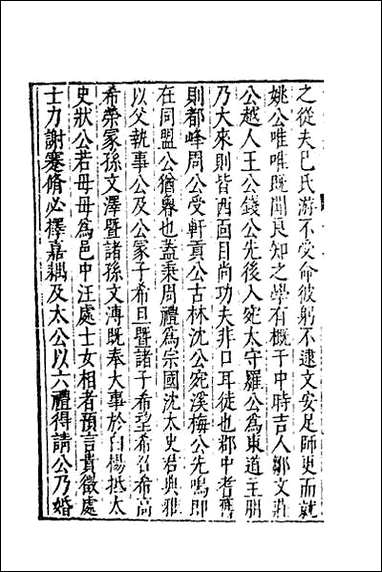 之從夫巴氏游不受命彼躬不逮文安足師更而就
姚公唯唯既聞良知之學有概于中時吉人鄒文莊
公越人王公錢公先後入宛太守羅公為東道主朋
乃大來則皆西面目尚功夫非口耳徒也郡中耆舊
則都峰周公受軒貢公古林沈公宛溪梅公先鳴即
在同盟公猶魯也蓋秉周禮為宗國沈太史君與雅
以父執事公及公冢子希旦暨諸子希望希召希高
希榮冢孫文澤暨諸孫文溥既奉大事於白楊抵太
史狀公若毋毋為邑中汪處士女相者預言貴徵處
士力謝蹇脩必擇嘉耦及太公以六禮得請公乃婚